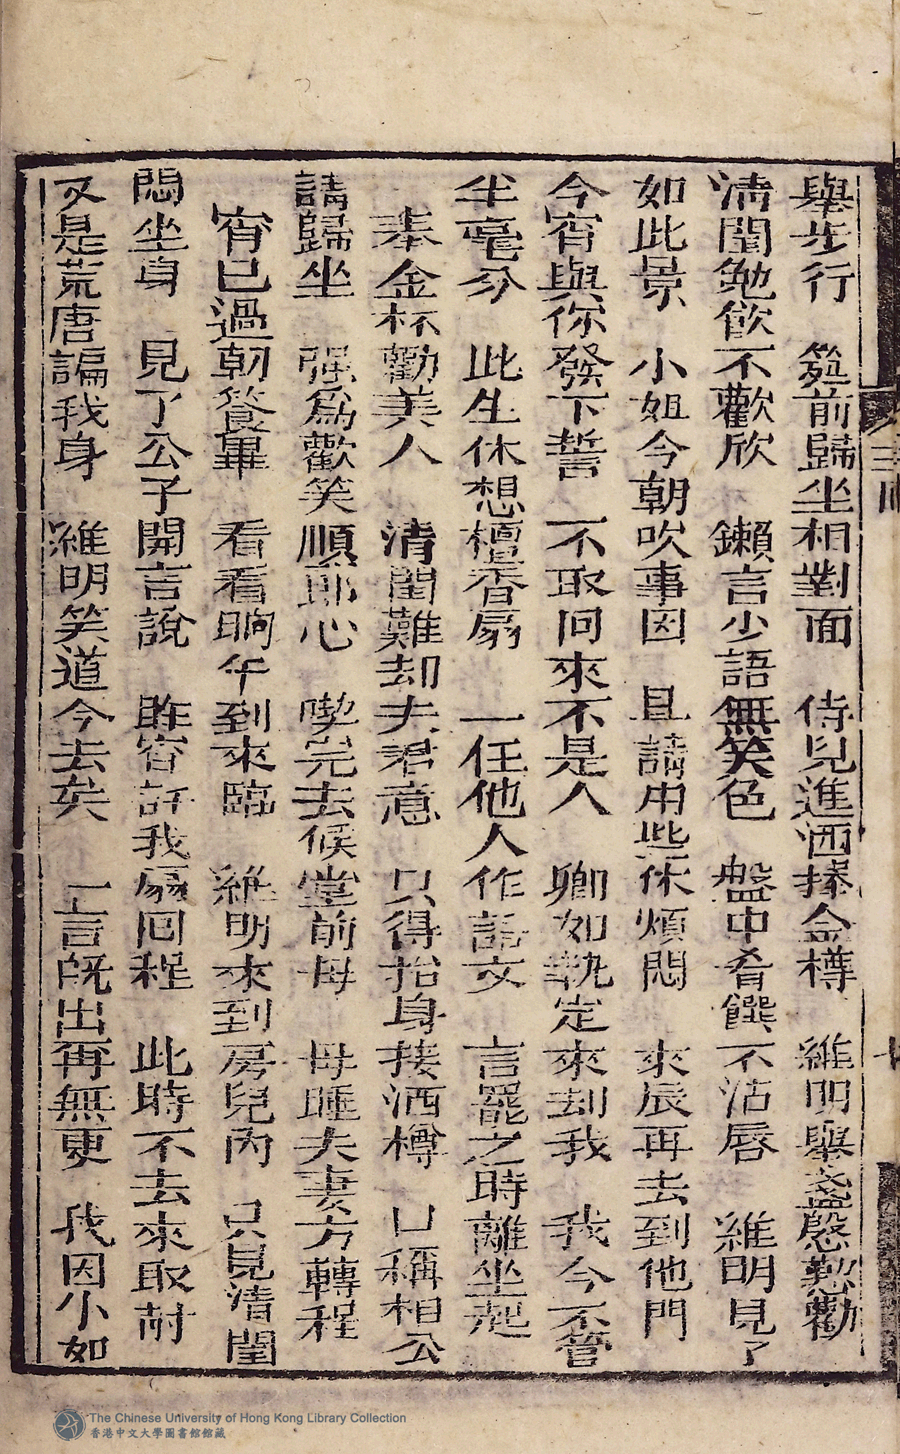 舉步行　筵前歸坐相對面　侍兒進洒捧金樽　維明舉盞慇懃勸
淸閨勉飮不歡欣　鏻言少語無笑色　盤中肴饌不沾唇　維明見了
如此景　小姐今朝吹事因　且請用些休煩悶　來辰再去到他門
今宵與你發下誓　不取回來不是人　卿如執定來刦我　我今不管
半毫分　此生休想檀香扇　一任他人作話文　言罷之時離坐起
奉金杯勸美人　清閨難却夫君意　只得抬身接洒樽　口稱相公
請歸坐　强爲歡笑順郎心　喫完去候堂前母　母睡夫妻方轉程
宵已過朝餐畢　看看晌午到來臨　維明來到房兒內　只見清閨
悶坐身　見了公子開言說　昨宵許我扇囘程　此時不去來取討
又是荒唐諞我身　維明笑道今去矣　一言旣出再無更　我因小如
三
The Chinese University of Hong Kong Library Collection
香港中文大學圖書館館藏